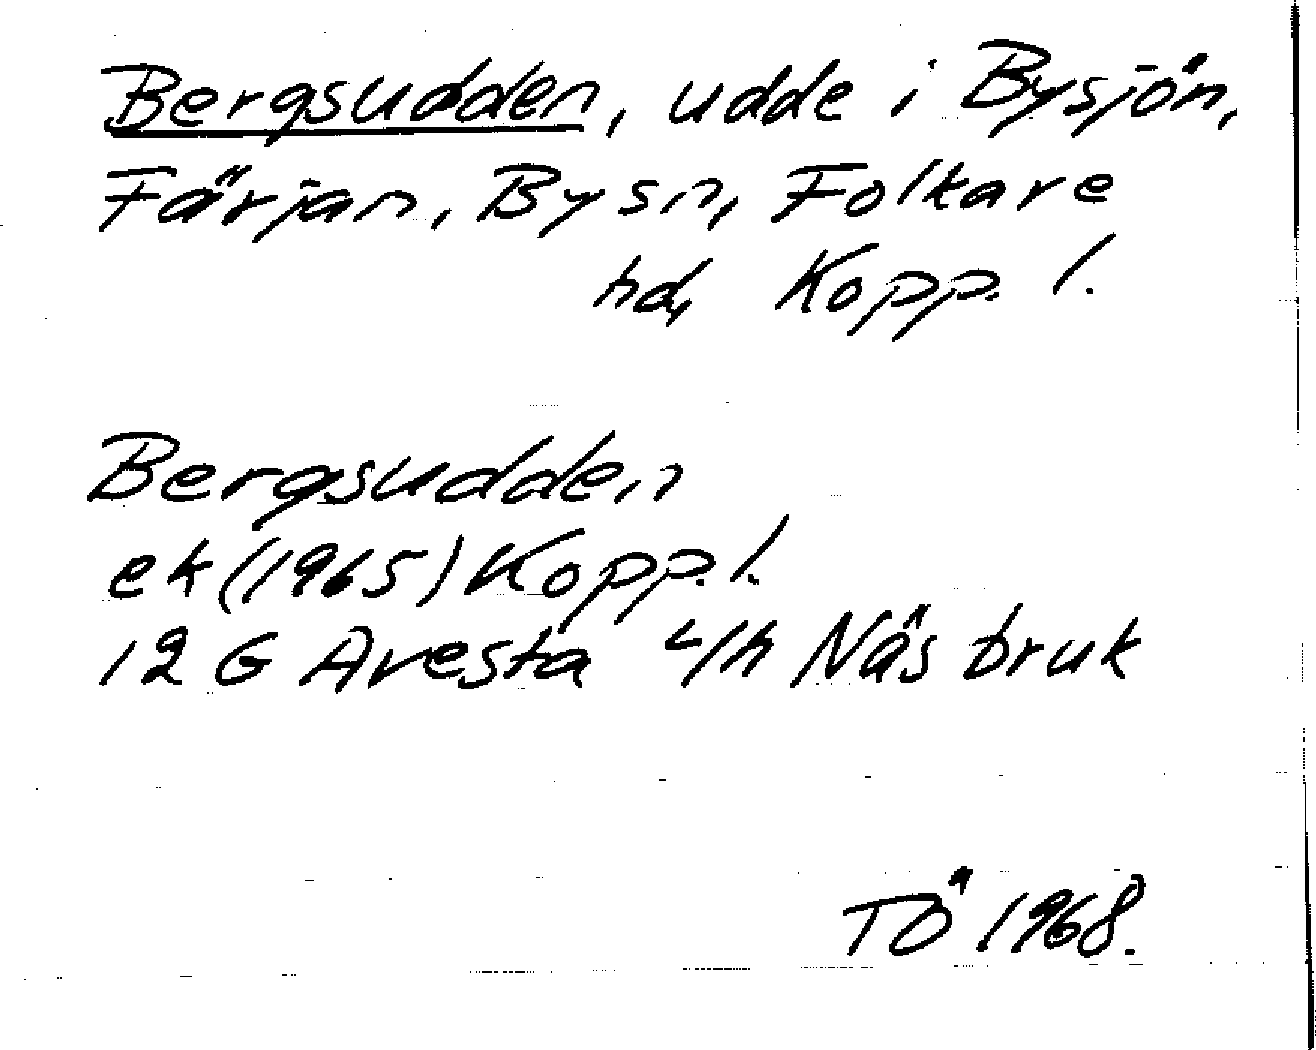 Bergsudden, udde i Bysjön,
Färjan, By sn, Folkare
hd, Kopp. l.
Bergsudden
ek (1965) Kopp. l.
12 G Avesta 4/h Näs bruk
TÖ 1968.